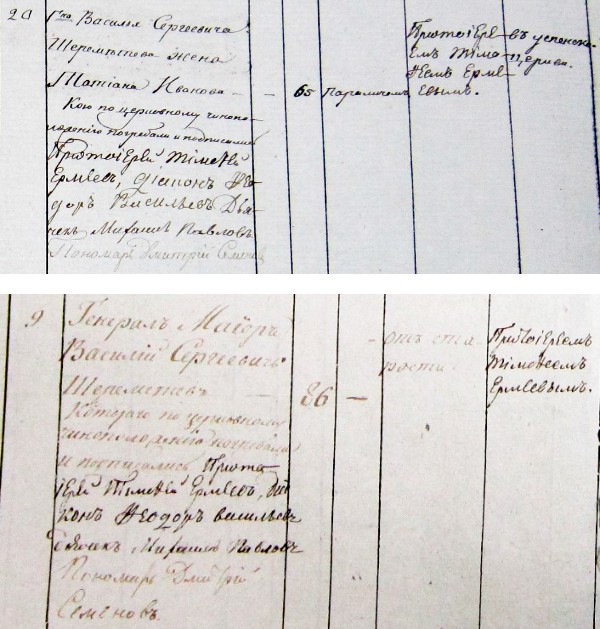 20
Гна Василья Сергеевича
Шереметева жена
Татiана Иванова — — 65 параличемъ
Кою по церковному чинопо-
ложенiю погребали и подписались
Протоiерей Тiмофей
Ермеевъ, дiаконъ Фео-
доръ Васильевъ Дья-
чекъ Михаилъ Павловъ
Пономарь Дмитрiй Семеновъ
Протоiере-
емъ Тiмо-
феемъ Ерме-
евымъ.
въ успенско-
й церкви.
9
Генералъ Маiоръ
Василiй Сергеевичь
Шереметевъ —
86 —
Котораго по церковному
чиноположенiю погребали
и подписались Прото-
iерей Тiмофей Ермеевъ, дiа-
конъ Феодоръ васильевъ
дьячекъ Михаилъ Павловъ
Пономарь Дмитрiй
Семеновъ.
— отъ ста-
рости.
Протоiереемъ
Тiмофеемъ
Ермеевымъ.